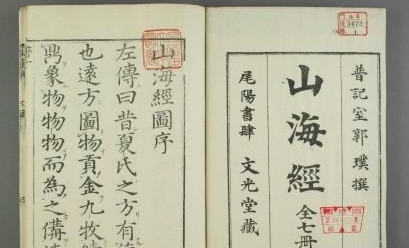 晋記室郭璞撰
山海經 全七冊
尾陽書肆 文光堂藏
3472
1
山海經圖序
左傳曰昔夏氏之方有
也遠方圖物貢金九牧
鼎象物物物而為之備